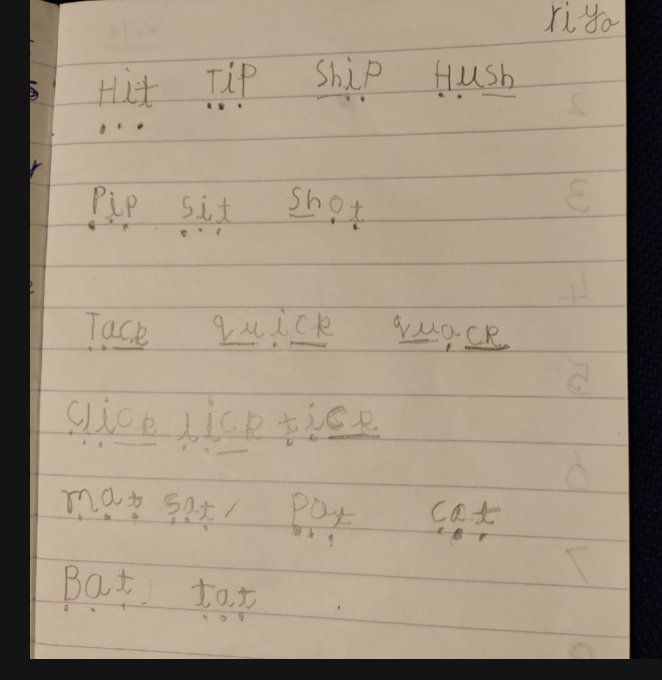 riya
Hit TiP ShiP HuSh
PiP sit Shot
Tack quick quack
Click lick tick
mat sat/ Pat cat
Bat tat